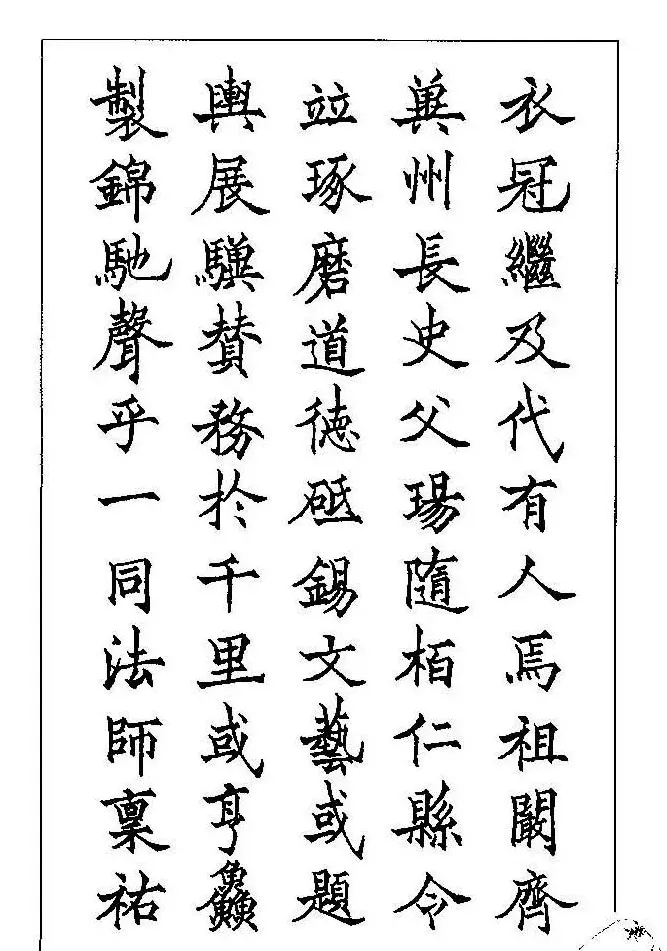 衣冠繼及代有人焉祖闞齊
兾州長史父瑒隨栢仁縣令
竝琢磨道徳砥錫文藝或題
輿展驥賛務於千里或亨鱻
製錦馳聲乎一同法師稟祐